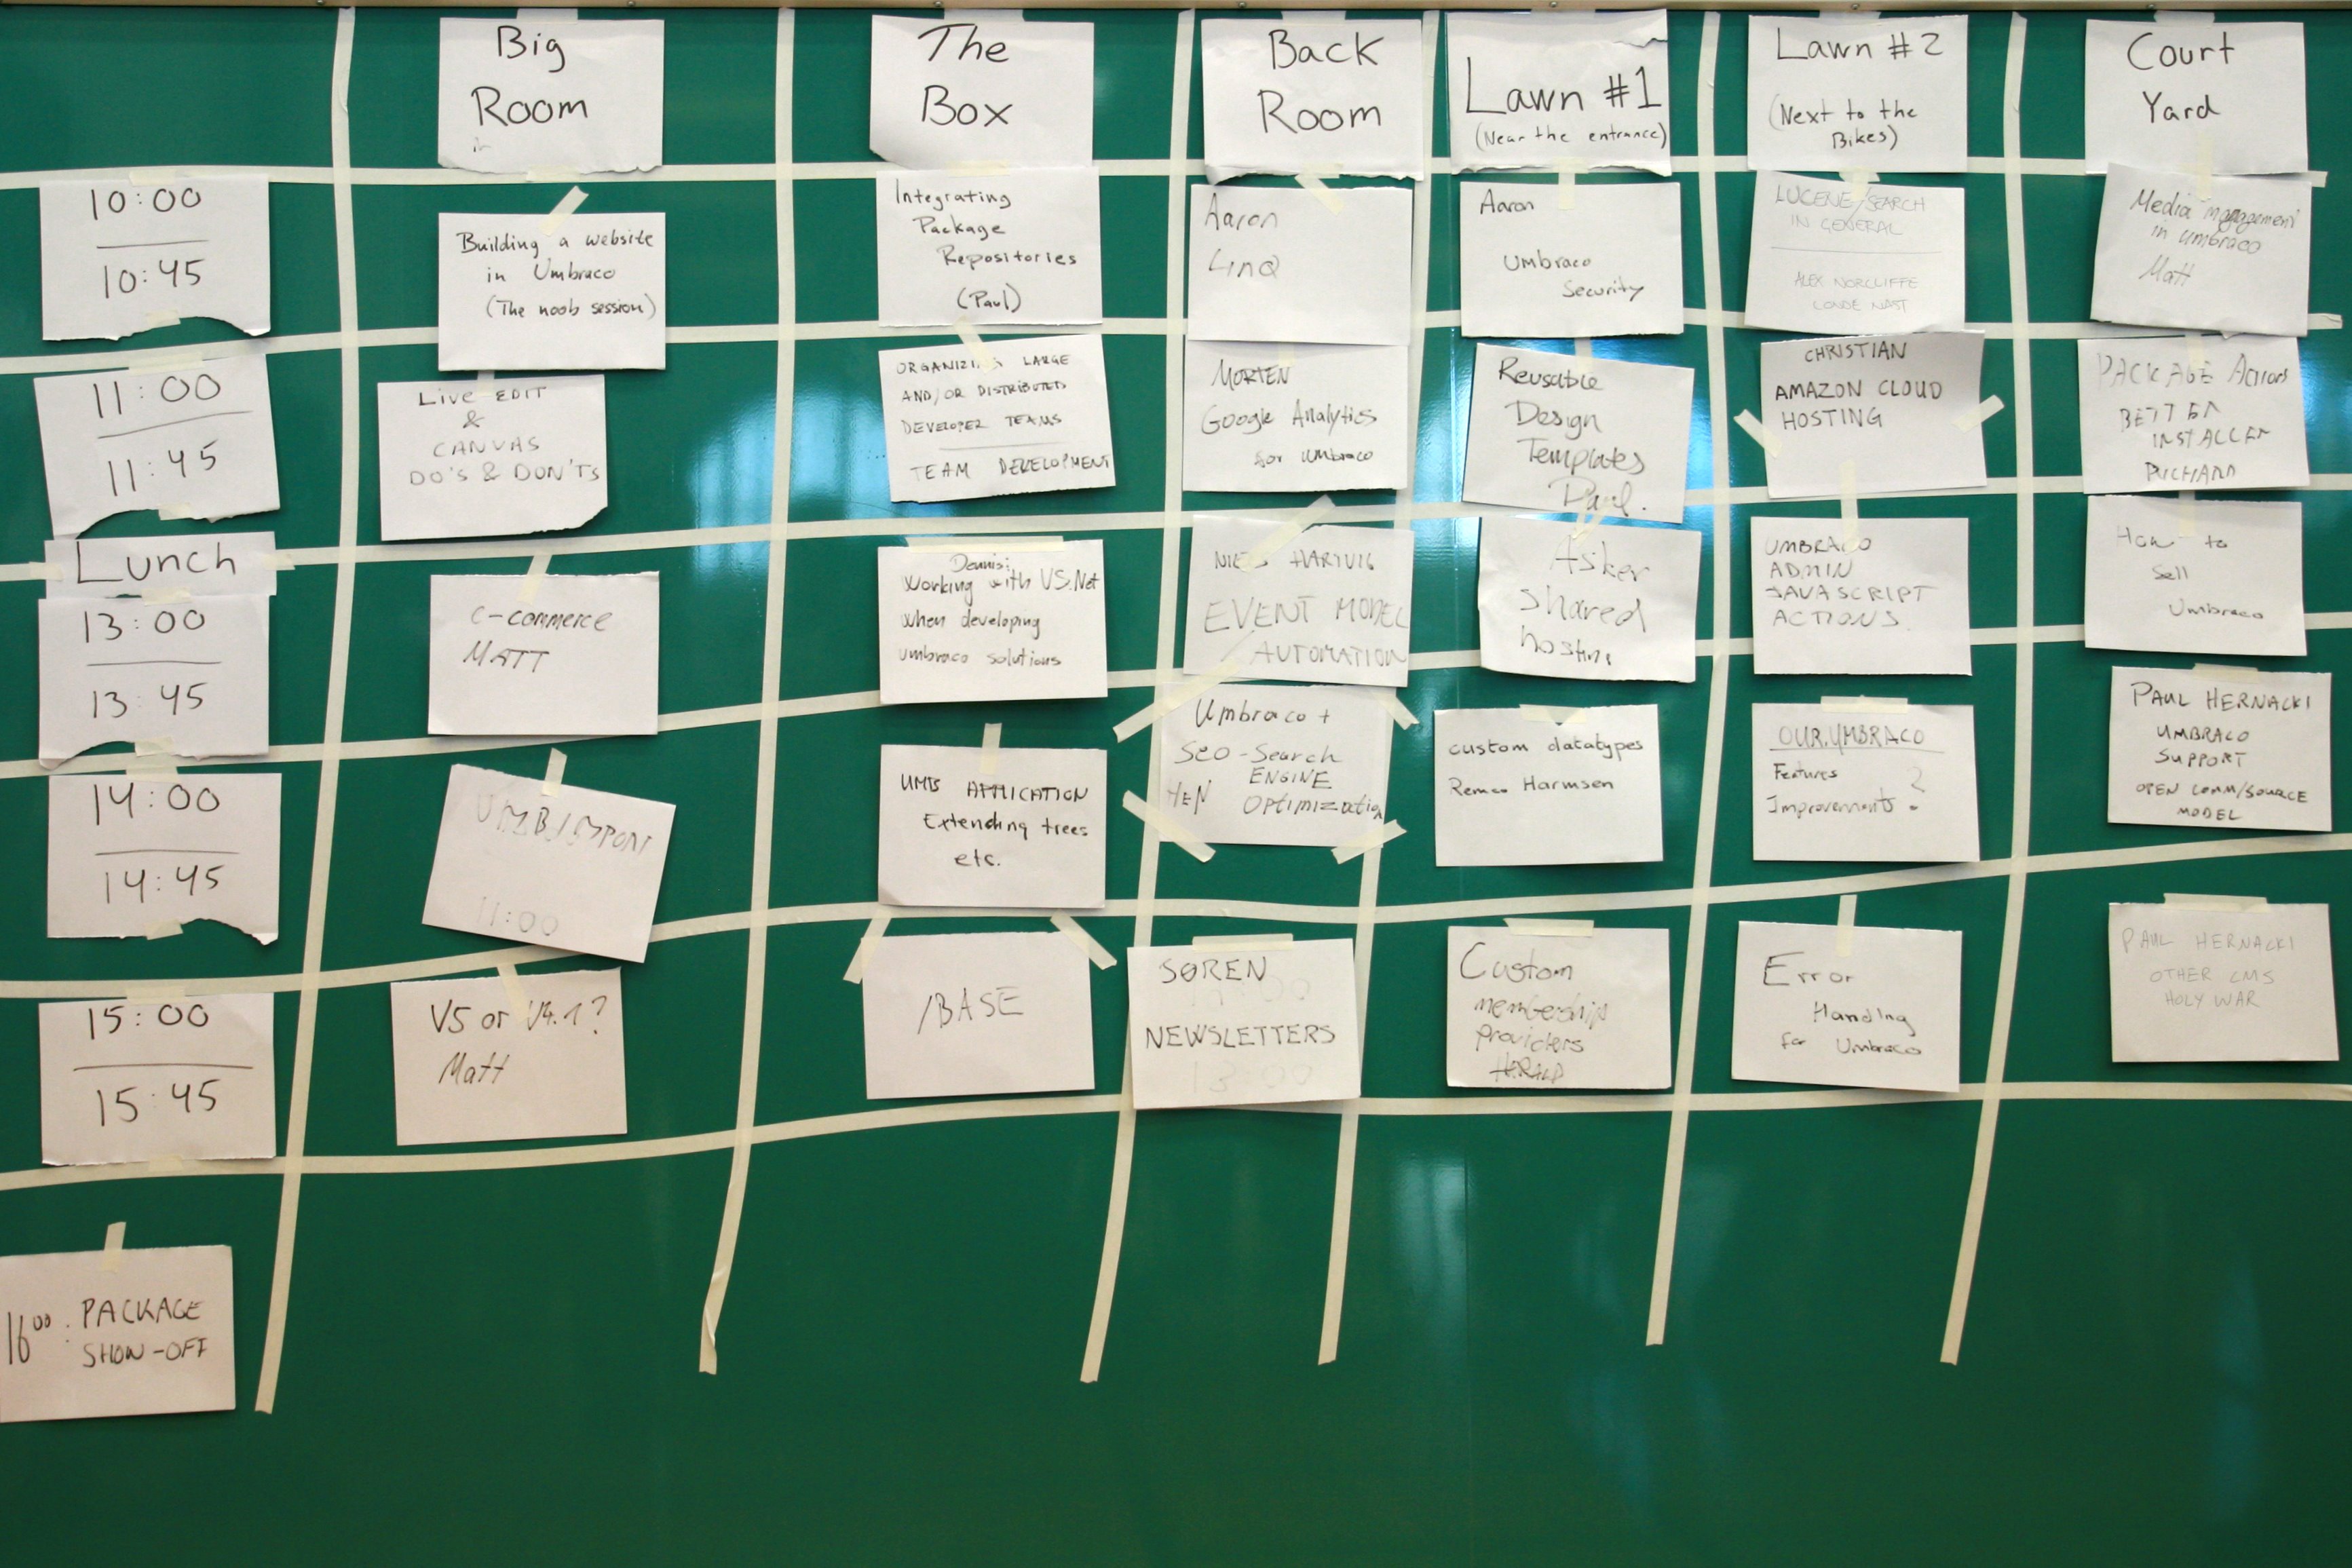 Big
Room
The
Box
Back
Room
Lawn #1
(Near the entrance)
Lawn #2
(Next to the
Bikes)
Court
Yard
10:00
10:45
Building a website
in Umbraco
(The noob session)
Integrating
Package
Repositories
(Paul)
Aaron
LINQ
Aaron
Umbraco
Security
LUCENE/SEARCH
IN GENERAL
ALEX NORCLIFFE
CONDE NAST
Media management
in umbraco
Matt
11:00
11:45
Live EDIT
&
CANVAS
DO'S & DON'TS
ORGANIZING LARGE
AND/OR DISTRIBUTED
DEVELOPER TEAMS
TEAM DEVELOPMENT
MORTEN
Google Analytics
for Umbraco
Reusable
Design
Templates
Paul.
CHRISTIAN
AMAZON CLOUD
HOSTING
PACKAGE Actions
BETTER
INSTALLER
RICHARD
Lunch
13:00
13:45
e-commerce
MATT
Dennis:
Working with VS.Net
when developing
umbraco solutions
NIELS HARTVIG
EVENT MODEL
/AUTOMATION
Asker
Shared
hosting
UMBRACO
ADMIN
JAVASCRIPT
ACTIONS.
How to
Sell
Umbraco
14:00
14:45
UMBIMPORT
11:00
UMB APPLICATION
Extending trees
etc.
Umbraco +
SEO - Search
ENGINE
Optimization
custom datatypes
Remco Harmsen
OUR.UMBRACO
Features
Improvements?
PAUL HERNACKI
UMBRACO
SUPPORT
OPEN COMM/SOURCE
MODEL
15:00
15:45
V5 or V4.1?
Matt
/BASE
SØREN
NEWSLETTERS
13:00
Custom
membership
providers
HERALD
Error
Handlng
for Umbraco
PAUL HERNACKI
OTHER CMS
HOLY WAR
16⁰⁰: PACKAGE
SHOW-OFF